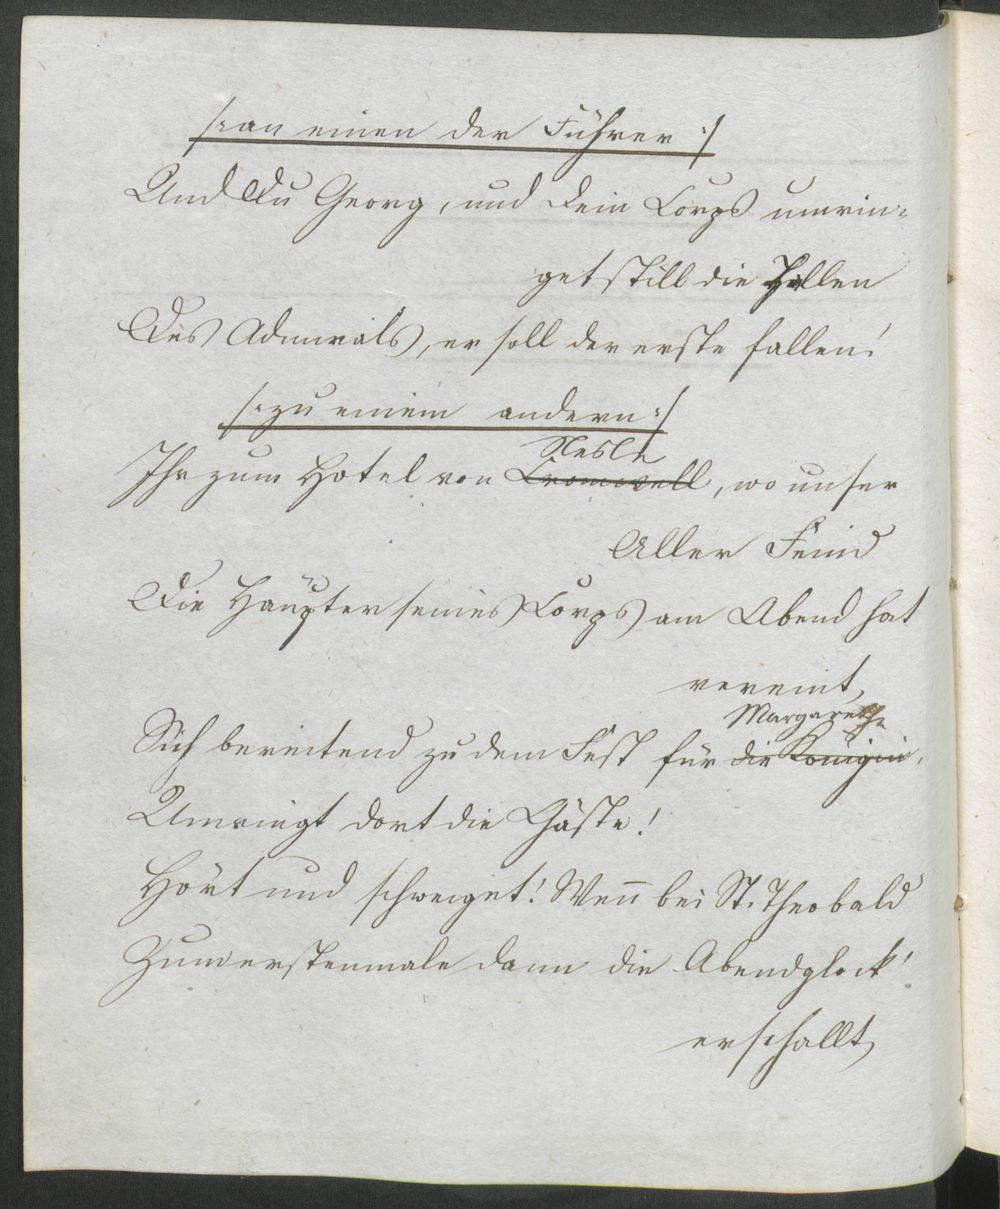 /: an einen der Führer :/
Und Du Georg, und Dein Corps umrin=
get still die Hallen
Des Admirals, er soll der erste fallen!
/: zu einem andern :/
Nesle
Ihr zum Hotel von Cromwell, wo unser
Aller Feind
Die Häupter seines Corps am Abend hat
vereint,
Margarethe
Sich bereitend zu dem Fest für die Königin,
Umringt dort die Gäste!
Hört und schweiget! Wen̄ bei St. Theobald
Zum erstenmale dann die Abendglock'
erschallt,